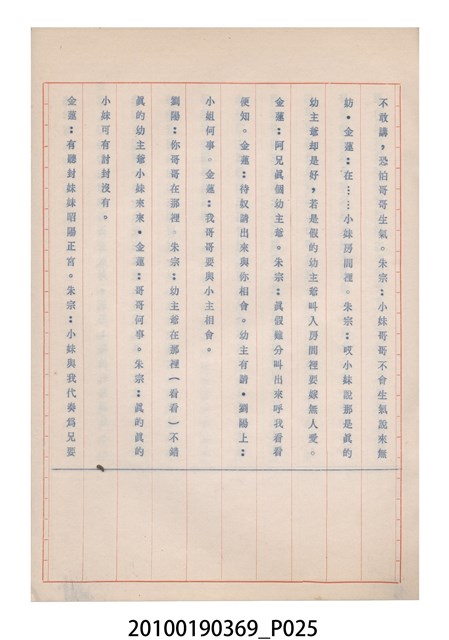 不敢講，恐怕哥哥生氣。朱宗：小妹哥哥不會生氣說來無
妨。金蓮：在……小妹房間裡。朱宗：哎小妹說那是眞的
幼主爺却是好，若是假的幼主爺叫入房間裡要嫁無人愛。
金蓮：阿兄眞個幼主爺。朱宗：眞假難分叫出來呼我看看
便知。金蓮：待奴請出來與你相會。幼主有請。劉陽上：
小姐何事。金蓮：我哥哥要與小主相會。
劉陽：你哥哥在那裡。朱宗：幼主爺在那裡（看看）不錯
眞的幼主爺小妹來來。金蓮：哥哥何事。朱宗：眞的眞的
小妹可有討封沒有。
金蓮：有聽封妹妹昭陽正宮。朱宗：小妹與我代奏爲兄要
20100190369_P025